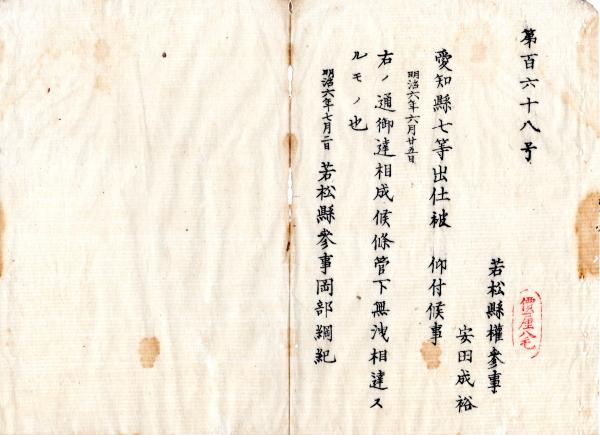 第百六十八号
價一厘八毛
若松縣權參事
安田成裕
愛知縣七等出仕被　仰付候事
明治六年六月廿五日
右ノ通御達相成候條管下無洩相達ス
ルモノ也
明治六年七月二日　若松縣參事岡部綱紀